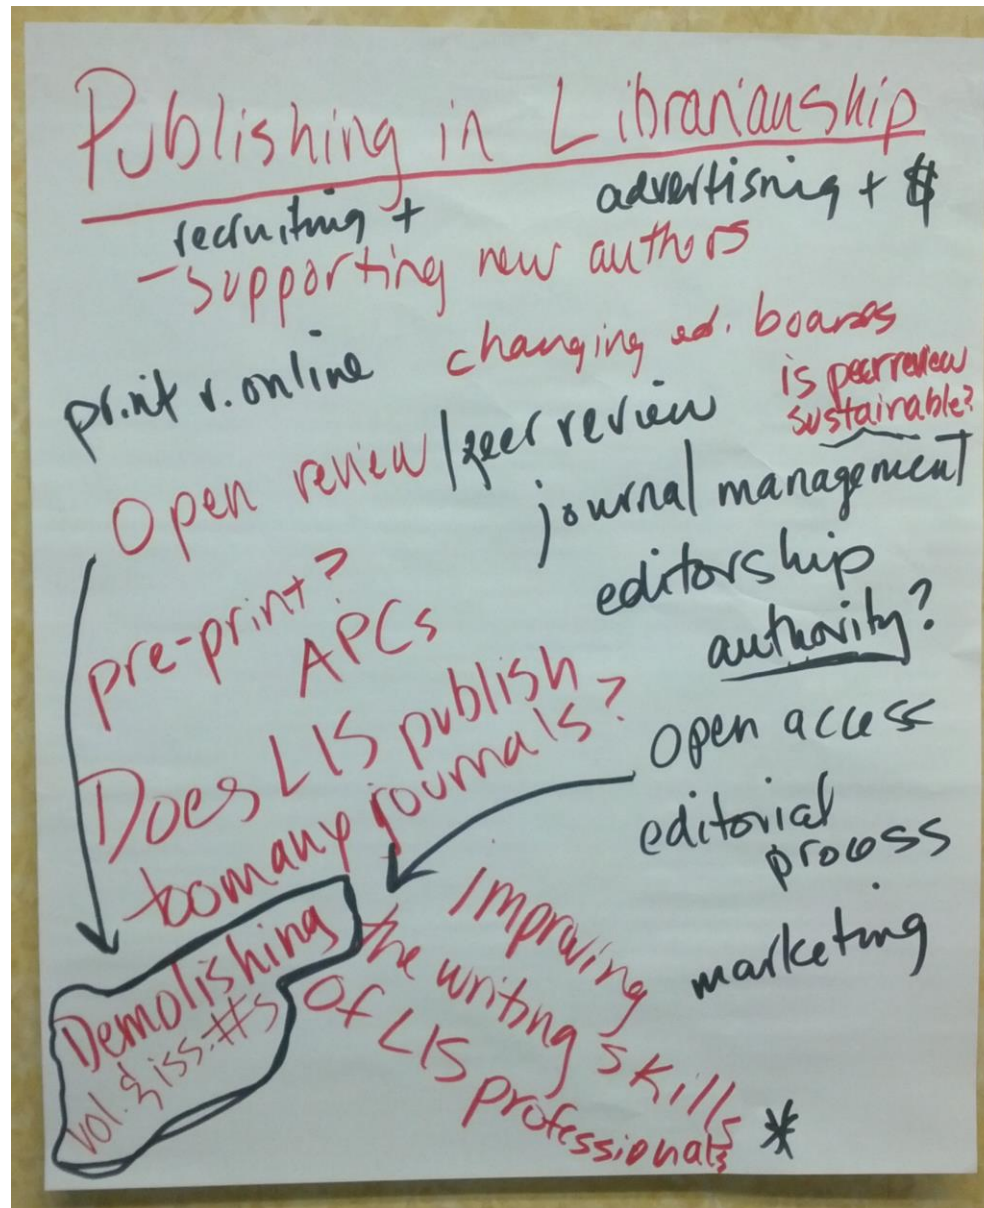 Publishing in Librarianship
recruiting +
advertisnig + $
- Supporting new authors
changing ed. boards
print v. online
is peer review
sustainable?
Open review / peer review
journal management
pre-print?
APCs
editorship
authority?
Does LIS publish
too many journals?
open access
editorial
process
marketing
Improving
the writing skills
of LIS
professionals *
Demolishing
vol. & iss. #s